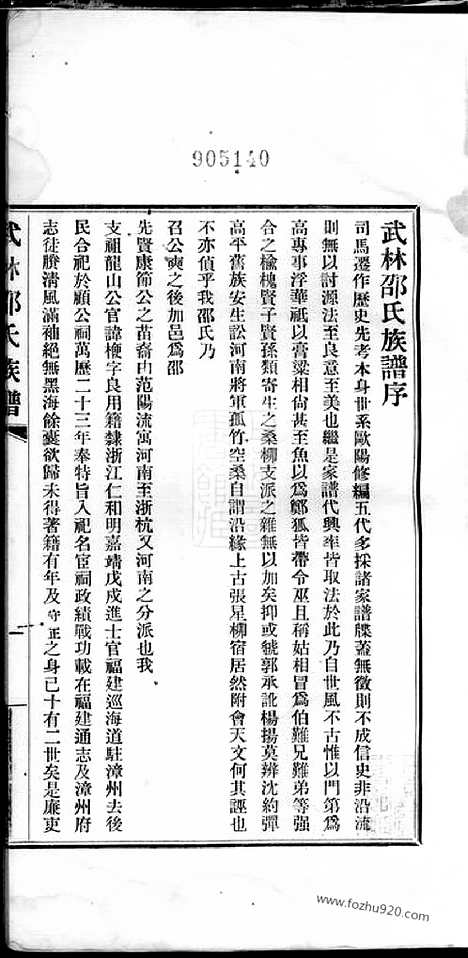 905140
武林邵氏族譜序
司馬遷作歷史先考本身世系歐陽修編五代多採諸家譜牒蓋無徵則不成信史非沿流
則無以討源法至良意至美也繼是家譜代興率皆取法於此乃自世風不古惟以門第爲
高專事浮華祇以膏粱相尙甚至魚以爲鄭狐皆帶令巫且稱姑相冒爲伯難兄難弟等强
合之楡槐賢子賢孫類寄生之桑柳支派之雜無以加矣抑或虢郭承訛楊揚莫辨沈約彈
高平舊族安生訟河南將軍孤竹空桑自謂沿緣上古張星柳宿居然附會天文何其誣也
不亦傎乎我邵氏乃
召公奭之後加邑爲邵
先賢康節公之苗裔由范陽流寓河南至浙杭又河南之分派也我
支祖龍山公官諱楩字良用籍隸浙江仁和明嘉靖戊戌進士官福建巡海道駐漳州去後
民合祀於顧公祠萬歷二十三年奉特旨入祀名宦祠政績戰功載在福建通志及漳州府
志徒賸清風滿袖絕無墨海餘囊欲歸未得著籍有年及守正之身已十有二世矣是廉吏
武林邵氏族譜
www.fozhu920.com